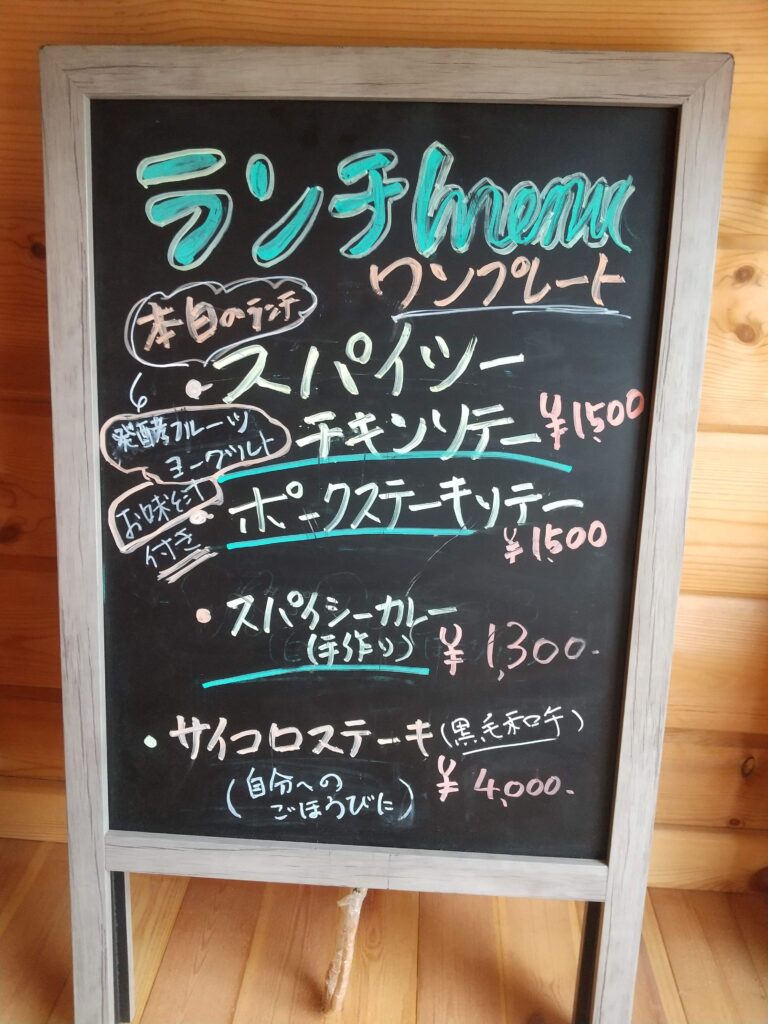 ランチmenu
ワンプレート
本日のランチ
・スパイシー
チキンソテー ¥1,500
発酵フルーツ
ヨーグルト
お味そ汁
付き
・ポークステーキソテー
¥1,500
・スパイシーカレー
(手作り) ¥1,300-
・サイコロステーキ(黒毛和牛)
¥4,000-
(自分への
ごほうびに)